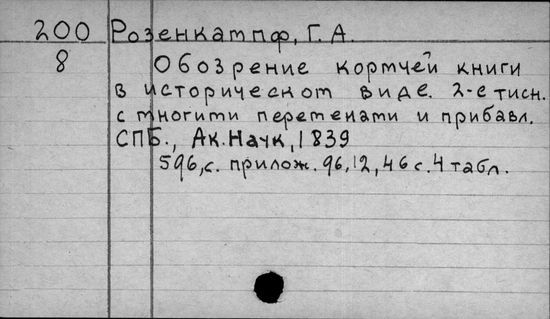 200 Розенкампф, Г. А.
8 Обозрение кормчей книги
в историческом виде. 2-е тисн.
с многими переменами и прибавл.
СПБ., Ак. Наук, 1839
596, с. прилож. 96, 12, 46 с. 4 табл.